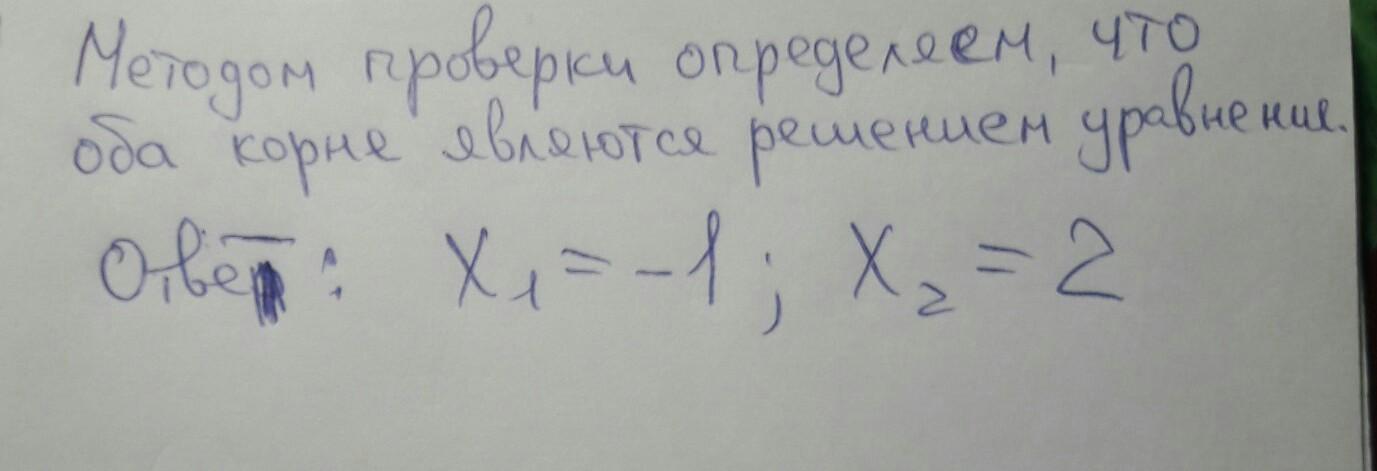 Методом проверки определяем, что
оба корня являются решением уравнения.
Ответ: x₁ = -1; x₂ = 2